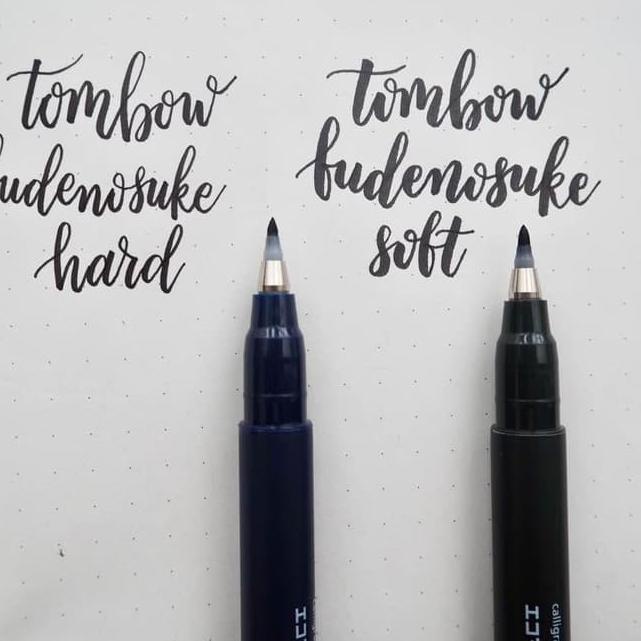 tombow
fudenosuke
hard
tombow
fudenosuke
soft
エコ
エコ